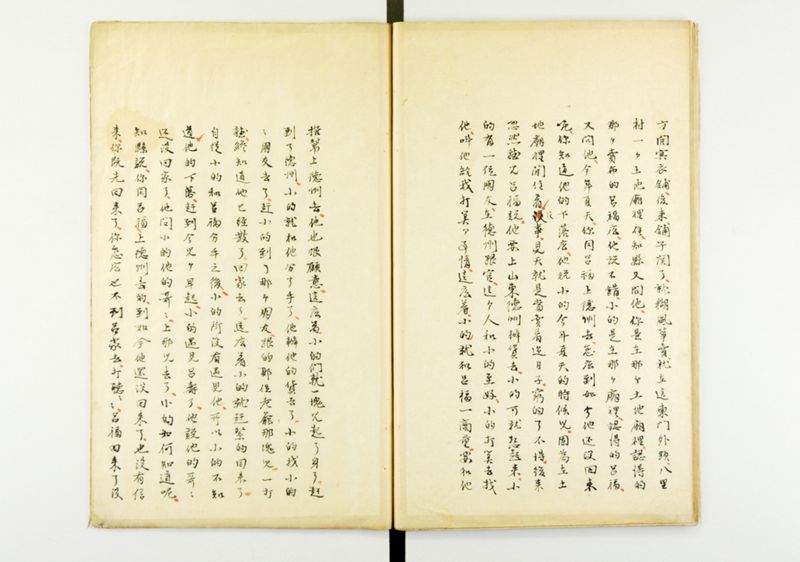 方開寔衣鋪後来鋪子関了就糊風箏賣就在這東門外頭八里
村一个土地廟裡住知縣又問他你是在那个土地廟裡認得的
那个賣布的呂福広他說不錯小的是在那个廟裡認得的呂福
又問他今年夏天你同呂福上德州去怎広到如今他还沒回来
呢你知道他的下落広他說小的今年夏天的時候児因為在土
地廟裡閒住着沒事見天就是當賣着过日子窮的了不得後来
忽然聽見呂福說他要上山東德州辦貨去小的可就想起来小
的有一位朋友在德州跟官這个人和小的至好小的打算去找
他呌他給我打算个事情這広着小的就和呂福一商量當和他
搭幫上德州去他也狠願意這広着小的們就一塊児起了身了赶
到了德州小的就和他分了手了他辦他的貨去了小的找小的
〻朋友去了赶小的到了那个朋友跟的那位老爺那塊児一打
聽終知道他已經散了回家去了這広着小的就赶緊的回来了
自從小的和呂福分手之後小的所沒有遇見他可以小的不知
道他的下落赶到今児个早起小的遇見呂壽了他說他的哥〻
还沒回家了他問小的他的哥〻上那児去了小的如何知道呢
知縣說你同呂福上德州去的到如今他還沒回来了也沒有信
来你既先回来了你怎広也不到呂家去打聽〻呂福回来了沒